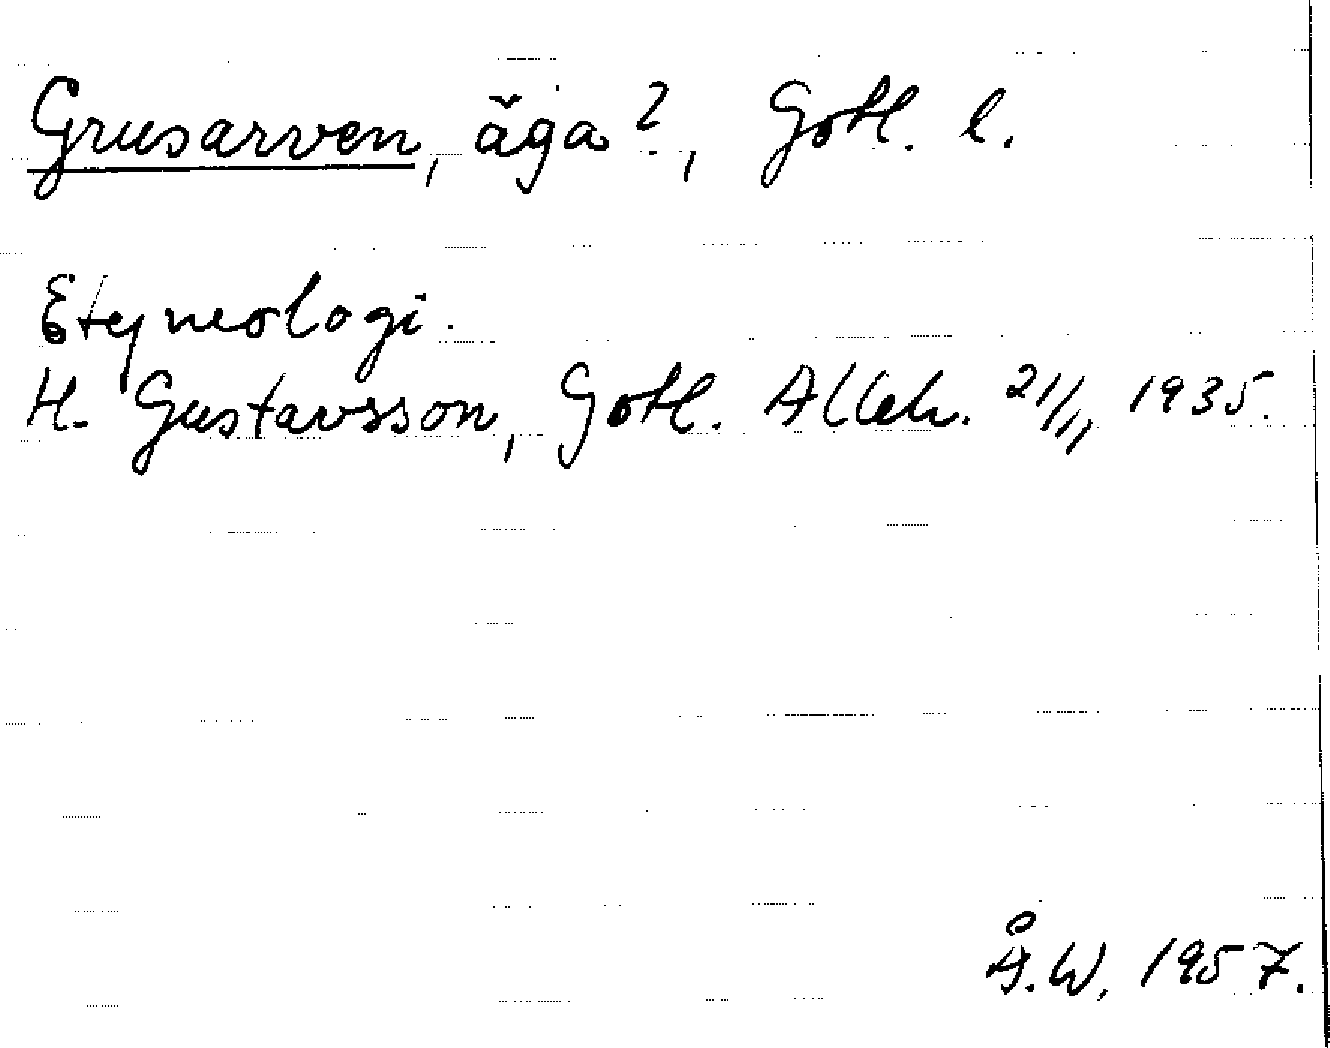 Grusarven, äga?, Gotl. l.
Etymologi.
H. Gustavsson, Gotl. Alleh. 21/11 1935.
Å.W. 1957.